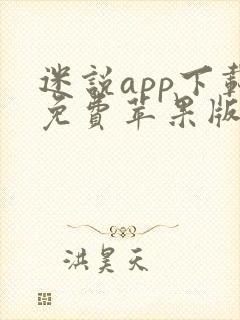 迷説app下載
免費苹果版
洪昊天